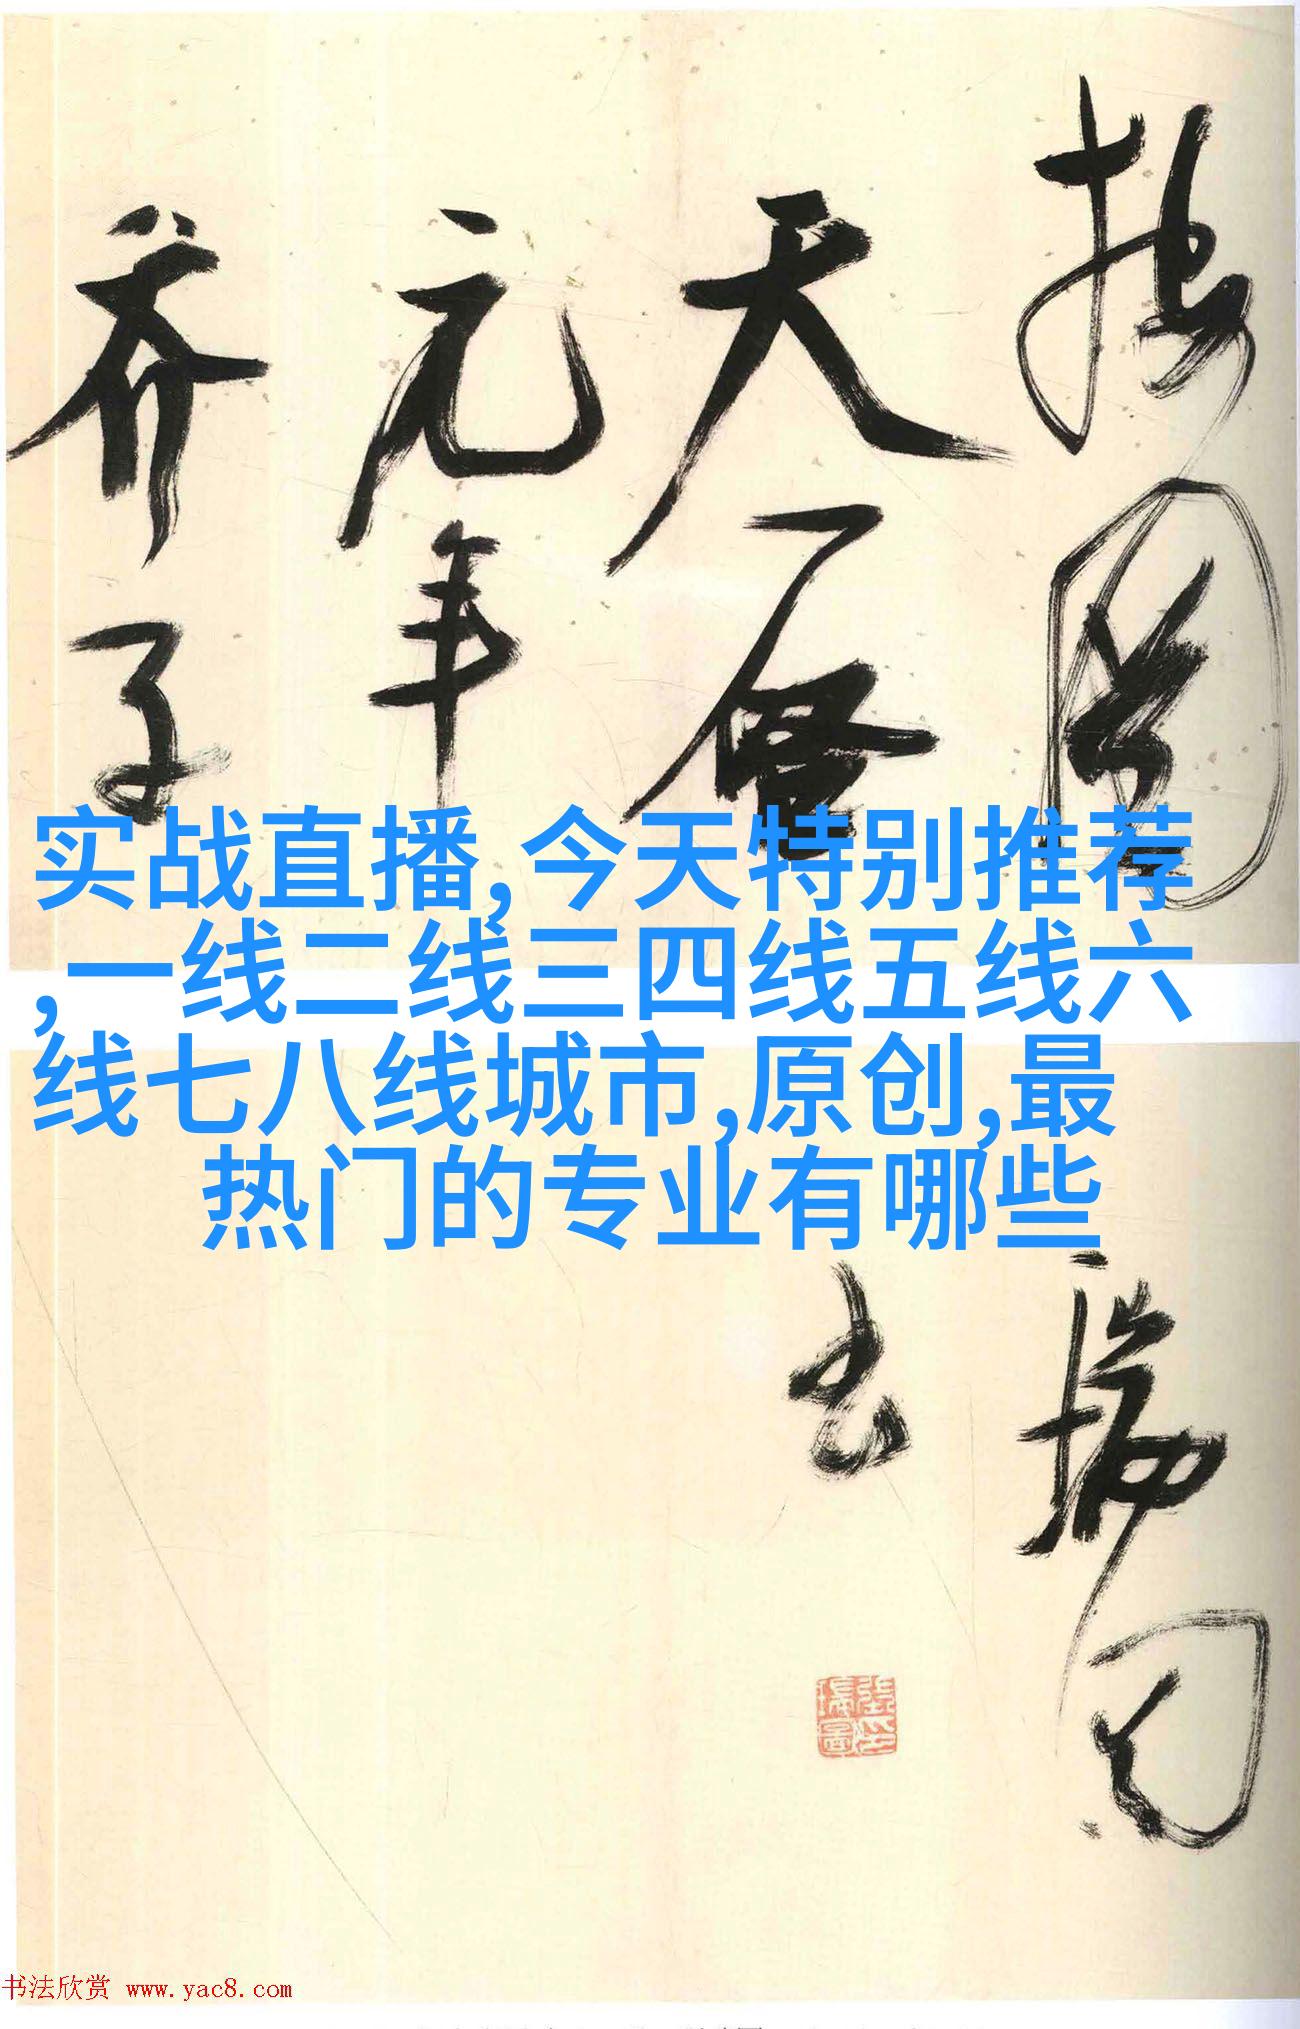 天啓
元年
实战直播,今天特别推荐
,一线二线三四线五线六
线七八线城市,原创,最
热门的专业有哪些
瑞圖
书法欣赏 www.yac8.com